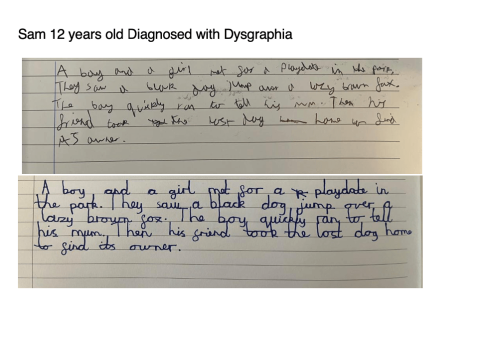 Sam 12 years old Diagnosed with Dysgraphia
A boy and a girl met for a playdate in the park.
They saw a black dog jump over a lazy brown fox.
The boy quickly ran to tell his mum. Then his
friend took the lost dog home to find
its owner.
A boy and a girl met for a playdate in
the park. They saw a black dog jump over a
lazy brown fox. The boy quickly ran to tell
his mum. Then his friend took the lost dog home
to find its owner.